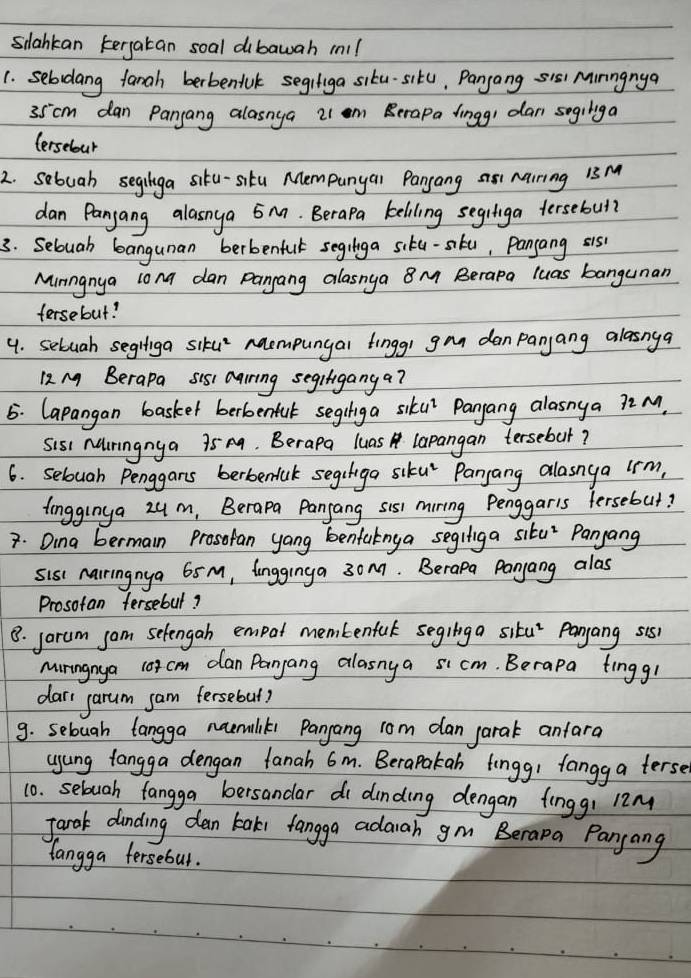 Silahkan kerjakan soal dibawah ini!
1. Sebidang tanah berbentuk segitiga siku-siku, Panjang sisi Miringnya
35 cm dan Panjang alasnya 21 cm Berapa tinggi dari segitiga
tersebut
2. Sebuah segitiga siku-siku Mempunyai Panjang sisi Miring 13 M
dan Panjang alasnya 5 M. Berapa keliling segitiga tersebut?
3. Sebuah bangunan berbentuk segitiga siku-siku, Panjang sisi
Miringnya 10 M dan Panjang alasnya 8 M Berapa luas bangunan
tersebut?
4. Sebuah segitiga siku² Mempunyai tinggi 9 m dan panjang alasnya
12 M Berapa sisi miring segitiganya?
5. Lapangan basket berbentuk segitiga siku² Panjang alasnya 72 M,
sisi Miringnya 75 M. Berapa luas lapangan tersebut?
6. Sebuah Penggaris berbentuk segitiga siku² Panjang alasnya
tingginya 24 m, Berapa Panjang sisi miring Penggaris tersebut?
7. Dina bermain Prosotan yang bentuknya segitiga siku² Panjang
sisi Miringnya 65 M, tingginya 30 M. Berapa Panjang alas
Prosotan tersebut?
8. Jarum jam setengah empat membentuk segitiga siku² Panjang sisi
Miringnya cm dan Panjang alasnya 51 cm. Berapa tinggi
dari jarum jam tersebut?
9. Sebuah tangga memiliki Panjang 10 m dan jarak antara
ujung tangga dengan tanah 6 m. Berapakah tinggi tangga terse
10. Sebuah tangga bersandar di dinding dengan tinggi 12 M
Jarak dinding dan kaki tangga adalah 9 m Berapa Panjang
tangga tersebut.